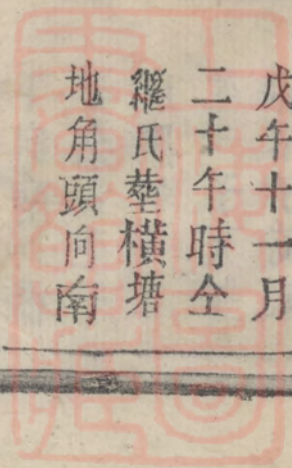 戊午十一月
二十午時仝
繼氏塟橫塘
地角頭向南